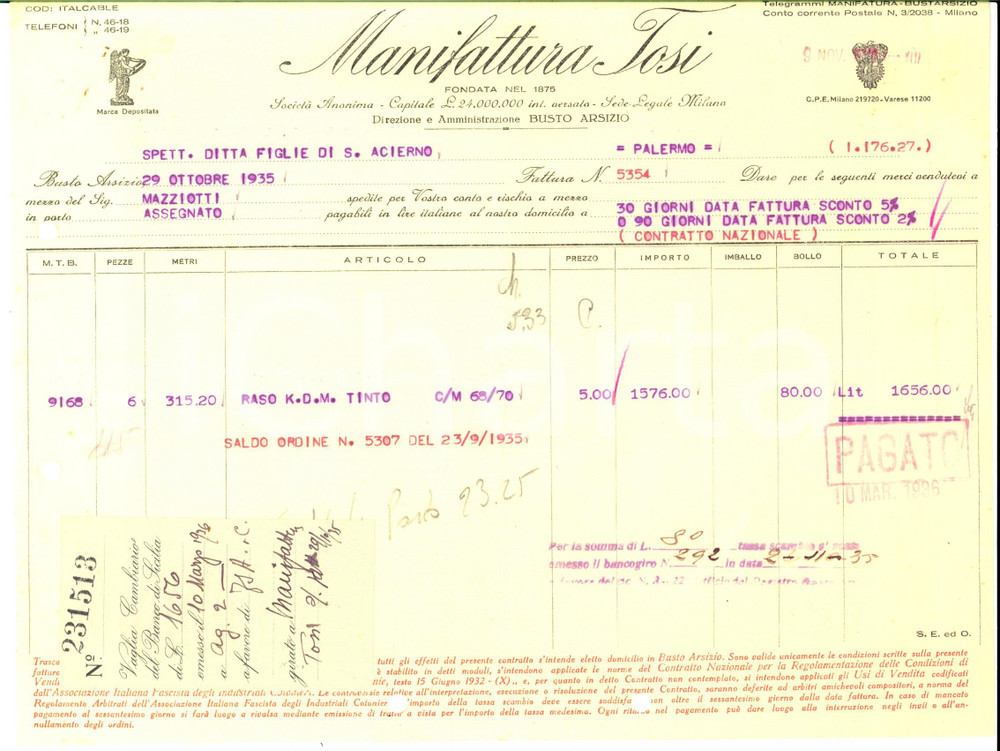 COD: ITALCABLE
TELEFONI { N. 46-18
„ 46-19
Marca Depositata
Manifattura Tosi
FONDATA NEL 1875
Società Anonima - Capitale L. 24.000.000 int. versato - Sede Legale Milano
Direzione e Amministrazione BUSTO ARSIZIO
Telegrammi MANIFATURA-BUSTARSIZIO
Conto corrente Postale N. 3/2038 - Milano
9 NOV.
C.P.E. Milano 219720 - Varese 11200
SPETT. DITTA FIGLIE DI S. ACIERNO, = PALERMO = (1.176.27.)
Busto Arsizio 29 OTTOBRE 1935 Fattura N. 5354 Dare per le seguenti merci vendutevi a
mezzo del Sig. MAZZIOTTI spedite per Vostro conto e rischio a mezzo
in porto ASSEGNATO pagabili in lire italiane al nostro domicilio a
30 GIORNI DATA FATTURA SCONTO 5%
O 90 GIORNI DATA FATTURA SCONTO 2%
( CONTRATTO NAZIONALE )
M.T.B. PEZZE METRI ARTICOLO PREZZO IMPORTO IMBALLO BOLLO TOTALE
9168 6 315.20 RASO K.D.M. TINTO C/M 68/70 5.00 1576.00 80.00 Lit 1656.00
SALDO ORDINE N. 5307 DEL 23/9/1935
PAGATO
10 MAR. 1936
Porto 23.25
Per la somma di L. 80 tassa scambio si è
emesso il bancogiro N. 292 in data 2-11-35
N° 231513
Vaglia Cambiario
del Banco di Sicilia
di L. 1656
emesso il 10 Marzo 1936
ag. 2
a favore di
girato a Manifatt.
Tosi
S. E. ed O.
tutti gli effetti del presente contratto s'intende eletto domicilio in Busto Arsizio. Sono valide unicamente le condizioni scritte sulla presente
fattura è stabilito in detti moduli, s'intendono applicate le norme del Contratto Nazionale per la Regolamentazione delle Condizioni di
Vendi testo 15 Giugno 1932 - (X) „ e, per quanto in detto Contratto non contemplato, si intendono applicati gli Usi di Vendita codificati
dall'Associazione Italiana Fascista degli Industriali Cotonieri. Le controversie relative all'interpretazione, esecuzione o risoluzione del presente Contratto, saranno deferite ad arbitri amichevoli compositori, a norma del
Regolamento Arbitrati dell'Associazione Italiana Fascista degli Industriali Cotonier importo della tassa scambio deve essere soddisfa non oltre il sessantesimo giorno dalla data fattura. In caso di mancato
pagamento al sessantesimo giorno si farà luogo a rivalsa mediante emissione di tratta a vista per l'importo della tassa medesima. Ogni ritardo nel pagamento può dare luogo alla interruzione negli invii o all'an-
nullamento degli ordini.